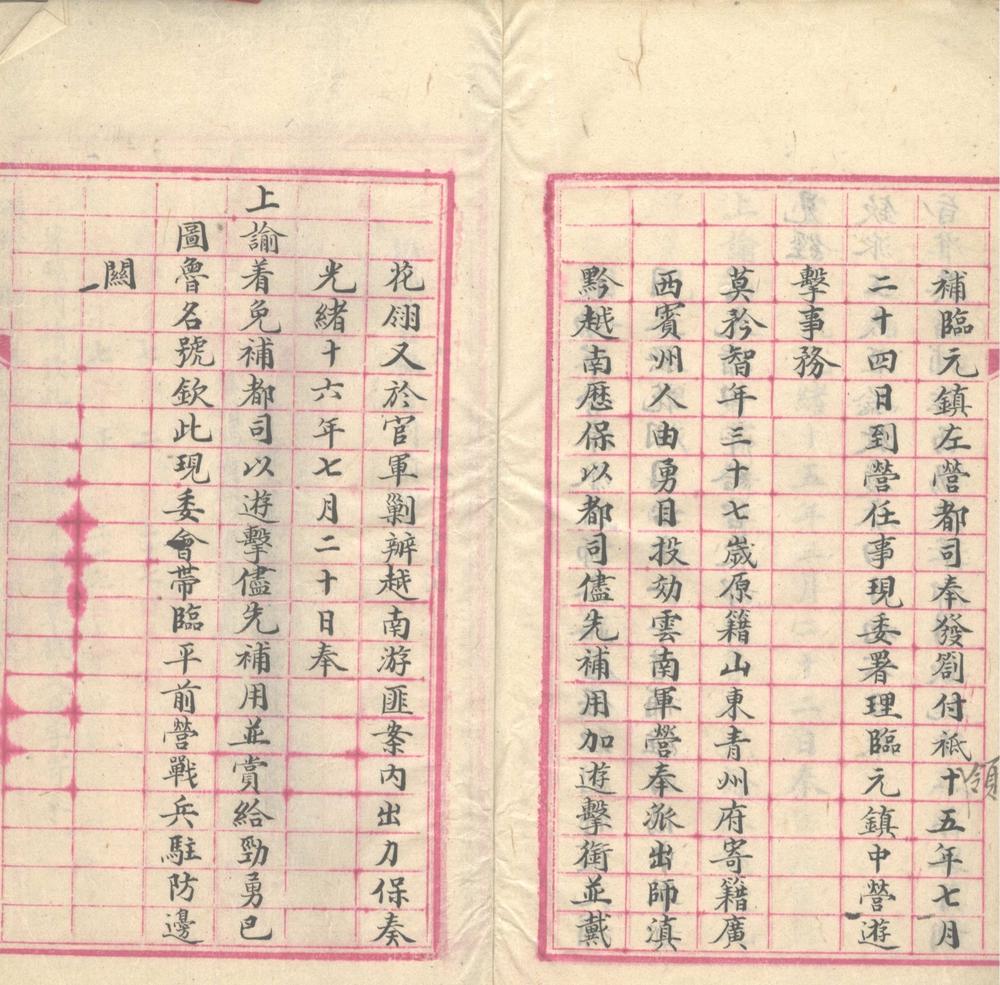 補臨元鎮左營都司奉發劄付祗領十五年七月
二十四日到營任事現委署理臨元鎮中營遊
擊事務
莫矜智年三十七歲原籍山東青州府寄籍廣
西賓州人由勇目投効雲南軍營奉派出師滇
黔越南歷保以都司儘先補用加遊擊銜並戴
花翎又於官軍剿辦越南游匪案內出力保奏
光緒十六年七月二十日奉
上諭着免補都司以遊擊儘先補用並賞給勁勇巴
圖魯名號欽此現委會帶臨平前營戰兵駐防邊
闗